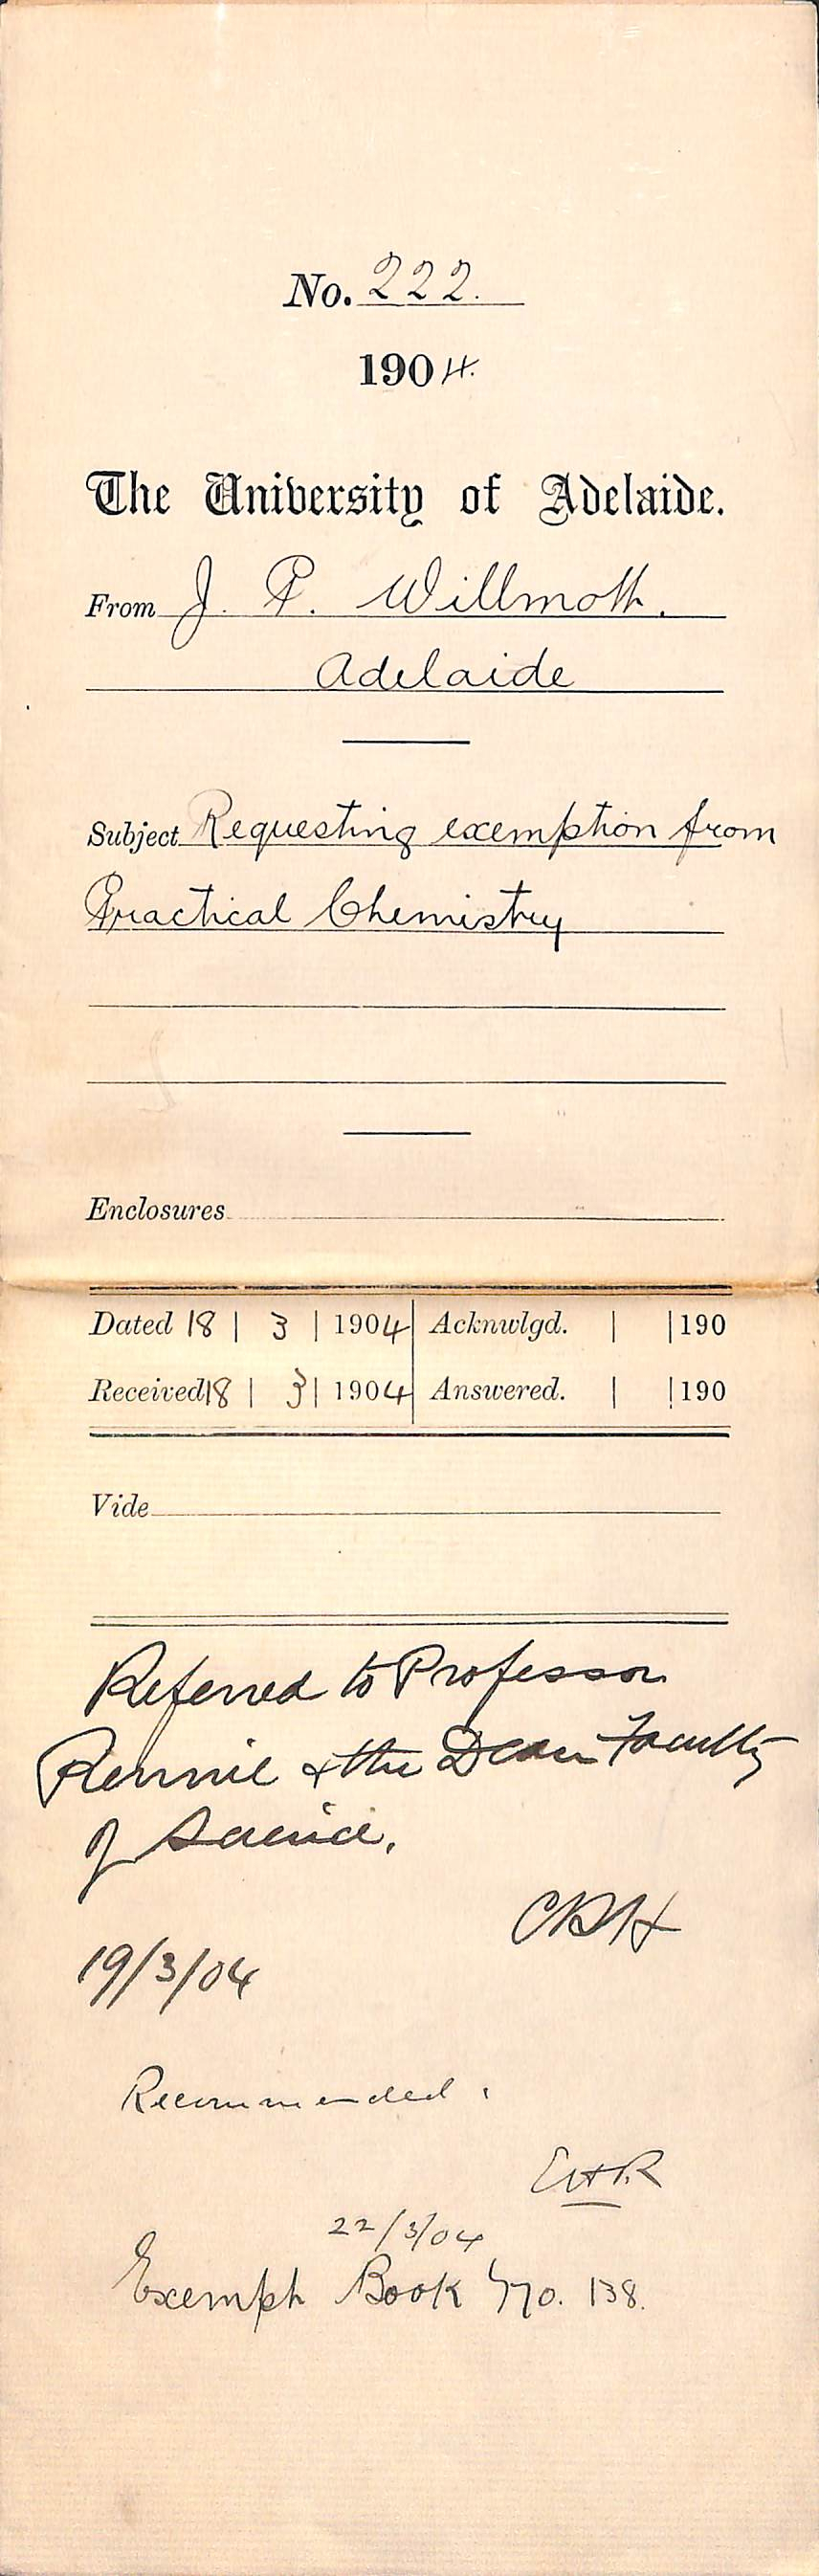 No. 222.
1904.
The University of Adelaide.
From J. P. Willmott.
Adelaide
Subject Requesting exemption from
Practical Chemistry
Enclosures
Dated 18 | 3 | 1904 Acknwlgd. | |190
Received 18 | 3 | 1904 Answered. | |190
Vide
Referred to Professor
Rennie & the Dean Faculty
of Science.
CRH
19/3/04
Recommended.
EHR
22/3/04
Exempt Book No. 138.